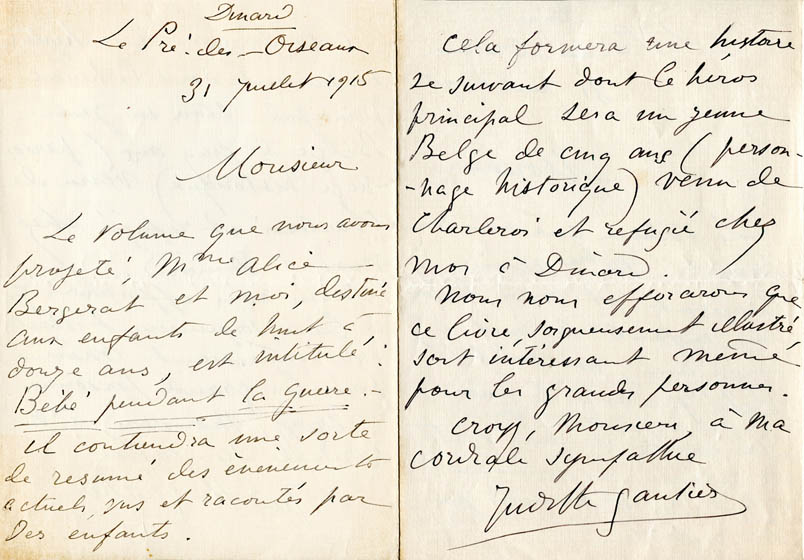 Dinard
Le Pré-des-Oiseaux
31 juillet 1915
Monsieur
Le volume que nous avons
projeté, Mme Alice
Bergerat et moi, destiné
aux enfants de huit à
douze ans, est intitulé :
Bébé pendant la Guerre. -
il contiendra une sorte
de resumé des évènements
actuels, vus et racontés par
Des enfants.
Cela formera une histoire
se suivant dont le héros
principal sera un jeune
Belge de cinq ans (person-
-nage historique) venu de
Charleroi et refugié chez
moi à Dinard.
Nous nous efforcerons que
ce livre, soigneusement illustré,
soit intéressant même
pour les grandes personnes.
Croyez, Monsieur, à ma
cordiale sympathie
Judith Gautier